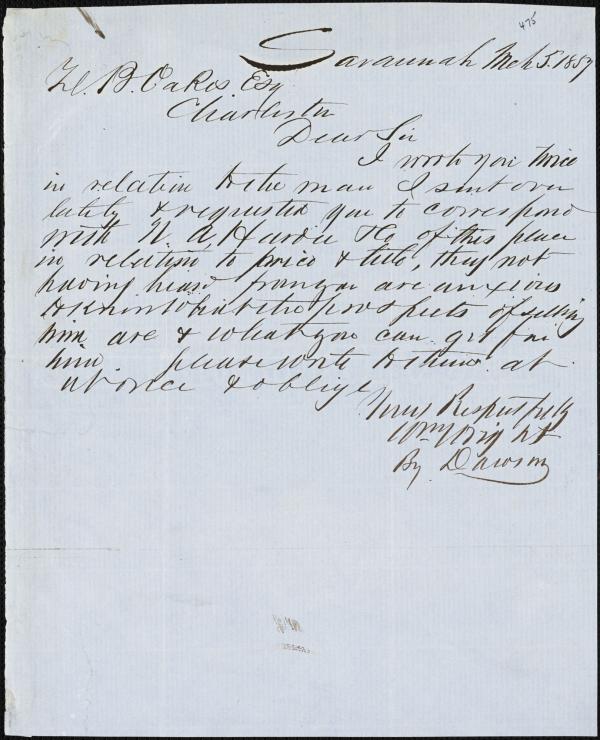 475
Savannah Mch 5. 1857
Z. B. Oakes. Esq
Charleston
Dear Sir
I wrote you twice
in relation to the man I sent over
lately & requested you to correspond
with N. A. Hardee & Co of this place
in relation to price & title, they not
having heard from you are anxious
to know what the prospects of selling
him are & what you can get for
him please write to them at
at once & oblige
Yours Respectfully
Wm Wright
By Dawson